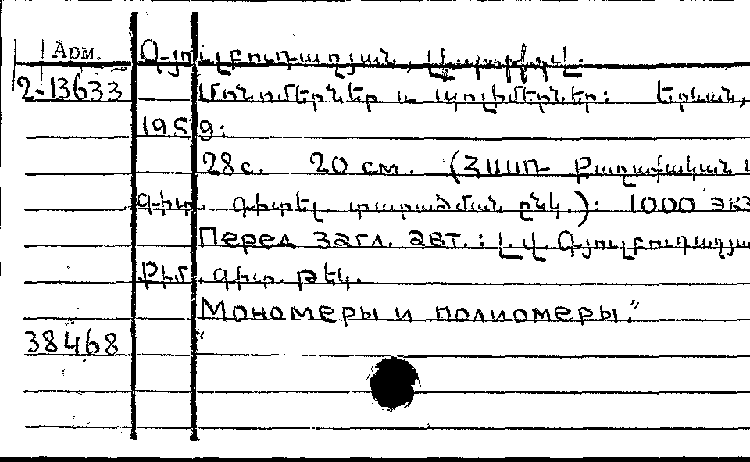 Арм. Գյուլբուդաղյան, Լ. Վ.
2-13633 Մոնոմերներ և պոլիմերներ: Երևան,
1959:
28 с. 20 см. (ՀՍՍՌ Քաղաքական և
գիտ. գիտել. տարածման ընկ.): 1000 экз
Перед загл. авт.: Լ. Վ. Գյուլբուդաղյա
քիմ. գիտ. թեկ.
Мономеры и полиомеры."
38468 "